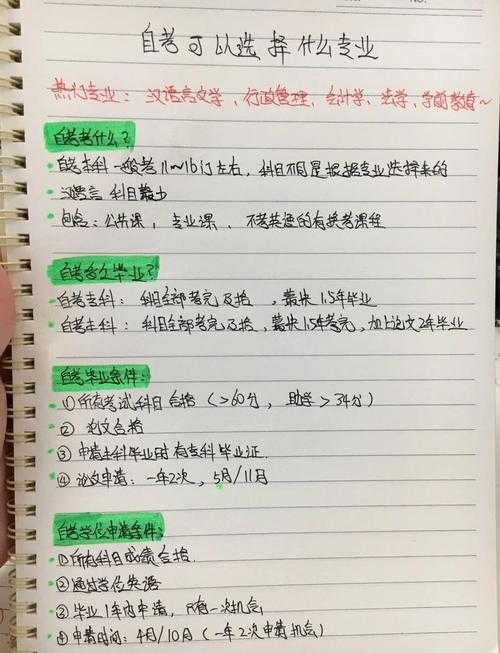 自考可以选择什么专业
热门专业：汉语言文学、行政管理、会计学、法学、学前教育~
自考考什么？
自考本科一般考11~16门左右，科目不同是根据专业选择来的
汉语言 科目最少
包含：公共课，专业课，不考英语的有换考课程
自考多久毕业？
自考专科：科目全部考完及格，最快1.5年毕业
自考本科：科目全部考完及格，最快1.5年考完，加上论文2年毕业
自考毕业条件：
①所有考试科目合格（>60分，助学>34分）
② 论文合格
③ 申请本科毕业时有专科毕业证.
④ 论文申请：一年2次，5月/11月
自考学位申请条件：
①所有科目成绩合格.
②通过学位英语
③ 毕业1年内申请，只有一次机会
④申请时间：4月/10月（一年2次申请机会）